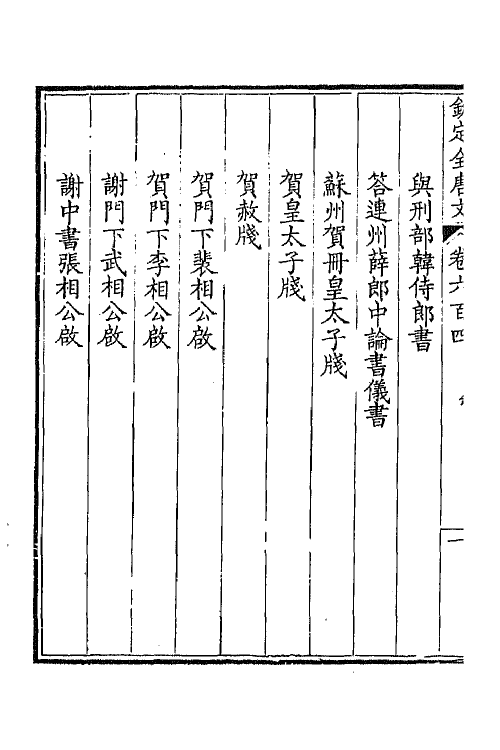 欽定全唐文 卷六百四 一
與刑部韓侍郎書
答連州薛郎中論書儀書
蘇州賀冊皇太子牋
賀皇太子牋
賀赦牋
賀門下裴相公啟
賀門下李相公啟
謝門下武相公啟
謝中書張相公啟